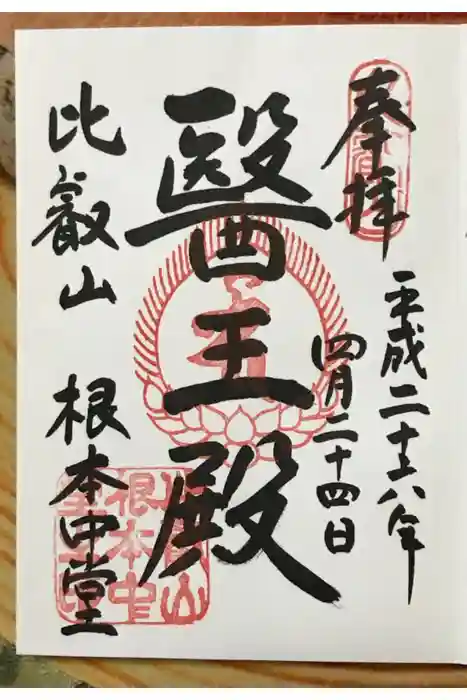 奉拝
平成二十六年
四月二十四日
醫王殿
比叡山 根本中堂